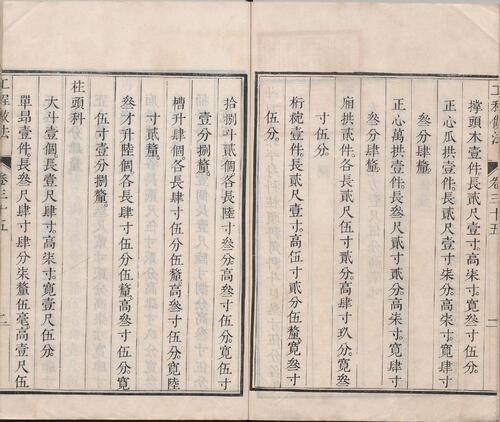 工程做法 卷三十五 一
撐頭木壹件長貳尺壹寸寬伍寸伍分。
正心瓜拱壹件長貳尺壹寸柒分高柒寸寬肆寸
叁分肆釐。
正心萬拱壹件長叁尺貳寸貳分高柒寸寬肆寸
叁分肆釐。
廂拱貳件各長貳尺伍寸貳分高肆寸玖分寬叁
寸伍分。
桁椀壹件長貳尺壹寸高伍寸貳分伍釐寬叁寸
伍分。
拾捌斗貳個各長陸寸叁分高叁寸伍分寬伍寸
壹分捌釐。
槽升肆個各長肆寸伍分伍釐高叁寸伍分寬陸
寸貳釐。
叁才升陸個各長肆寸伍分伍釐高叁寸伍分寬
伍寸壹分捌釐。
柱頭科
大斗壹個長壹尺肆寸高柒寸寬壹尺伍分。
單昻壹件長叁尺肆寸肆分柒釐伍毫高壹尺伍
工程做法 卷三十五 二